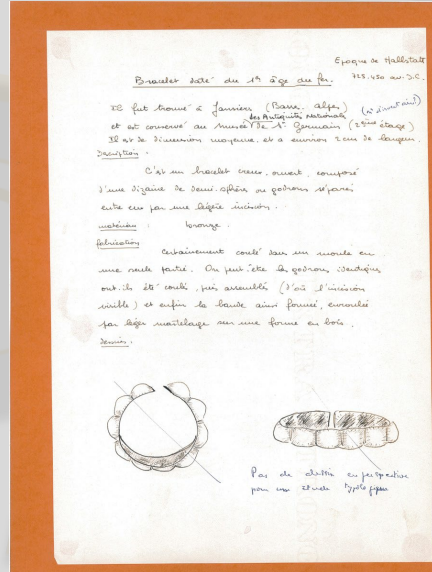 Epoque de Hallstatt
725-450 av. J.C.
Bracelet daté du 1er âge du fer.
Il fut trouvé à Jausiers (Basse Alpes)
des Antiquités Nationales (n° d'inventaire)
et est conservé au musée de St Germain (2ème étage)
Il est de dimension moyenne et a environ 2 cm de largeur.
Description.
C'est un bracelet creux, ouvert, composé
d'une dizaine de demi-sphère ou godrons séparés
entre eux par une légère incision.
matériau : bronze.
fabrication
Certainement coulé dans un moule en
une seule partie. Ou peut être les godrons identiques
ont-ils été coulé, puis assemblés (d'où l'incision
visible) et enfin la bande ainsi formée, enroulée
par léger martelage sur une forme en bois.
dessins.
Pas de dessin en perspective
pour une étude typologique